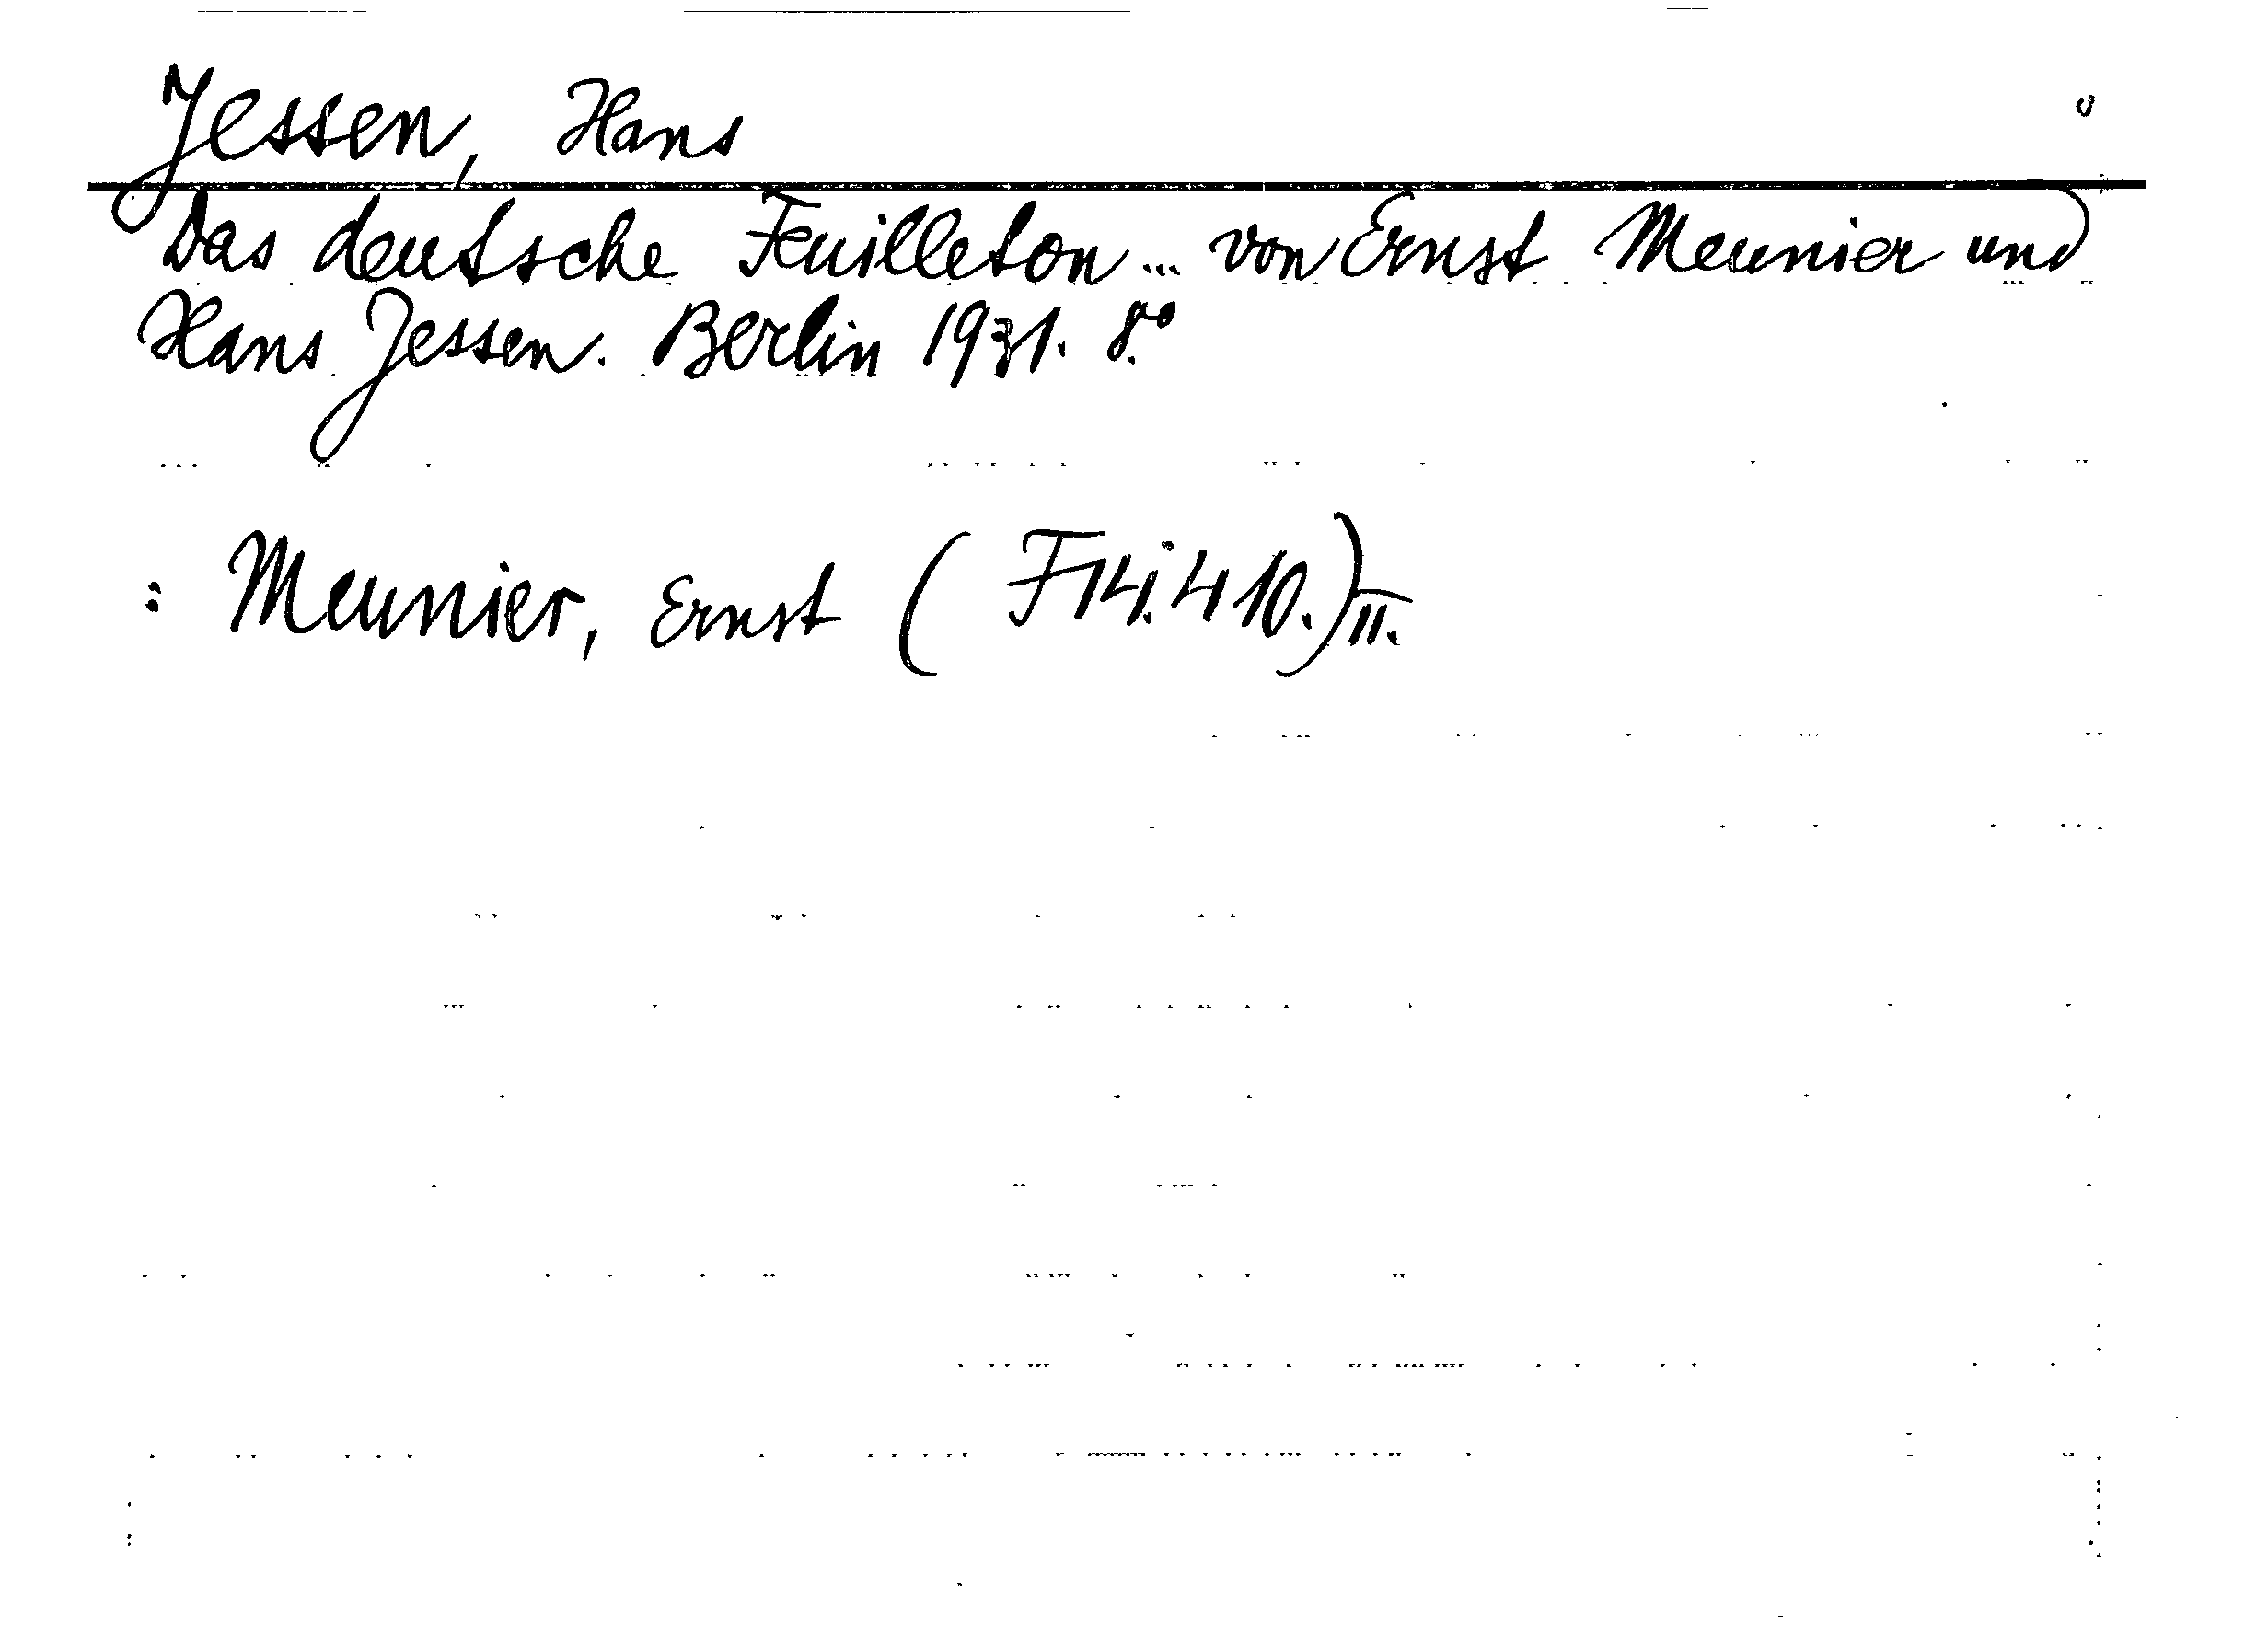 Jessen, Hans
Das deutsche Feuilleton ... von Ernst Meunier und
Hans Jessen. Berlin 1931. 8°.
: Meunier, Ernst (F 14.410.) II.